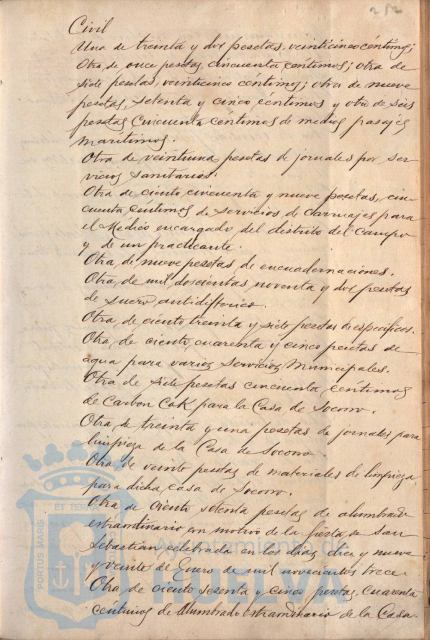 252
Civil
Una de treinta y dos pesetas, veinticinco centims;
Otra de once pesetas, cincuenta centimos; otra de
siete pesetas, veinticinco céntimos; otra de nueve
pesetas, setenta y cinco céntimos y otra de seis
pesetas cincuenta céntimos de medios pasajes
maritimos.
Otra de veintiuna pesetas de jornales por ser-
vicios sanitarios.
Otra de ciento cincuenta y nueve pesetas, cin-
cuenta céntimos de servicios de carruajes para
el Medico encargado del distrito del Campo
y de un practicante.
Otra de nueve pesetas de encuadernaciones.
Otra de mil doscientas noventa y dos pesetas
de suero antidifterico.
Otra de ciento treinta y siete pesetas de especificos.
Otra de ciento cuarenta y cinco pesetas de
agua para varios servicios Municipales.
Otra de siete pesetas cincuenta céntimos
de Carbon Cok para la Casa de Socorro.
Otra de treinta y una pesetas de jornales para
limpieza de la Casa de Socorro
Otra de veinte pesetas de materiales de limpieza
para dicha casa de Socorro.
Otra de ciento setenta pesetas de alumbrado
extraordinario con motivo de la fiesta de San
Sebastian celebrada en los dias diez y nueve
y veinte de Enero de mil novecientos trece.
Otra de ciento sesenta y cinco pesetas, cuarenta
centimos de Alumbrado extraordinario de la Casa
PORTUS MARIS
Ayuntamiento de
HUELVA